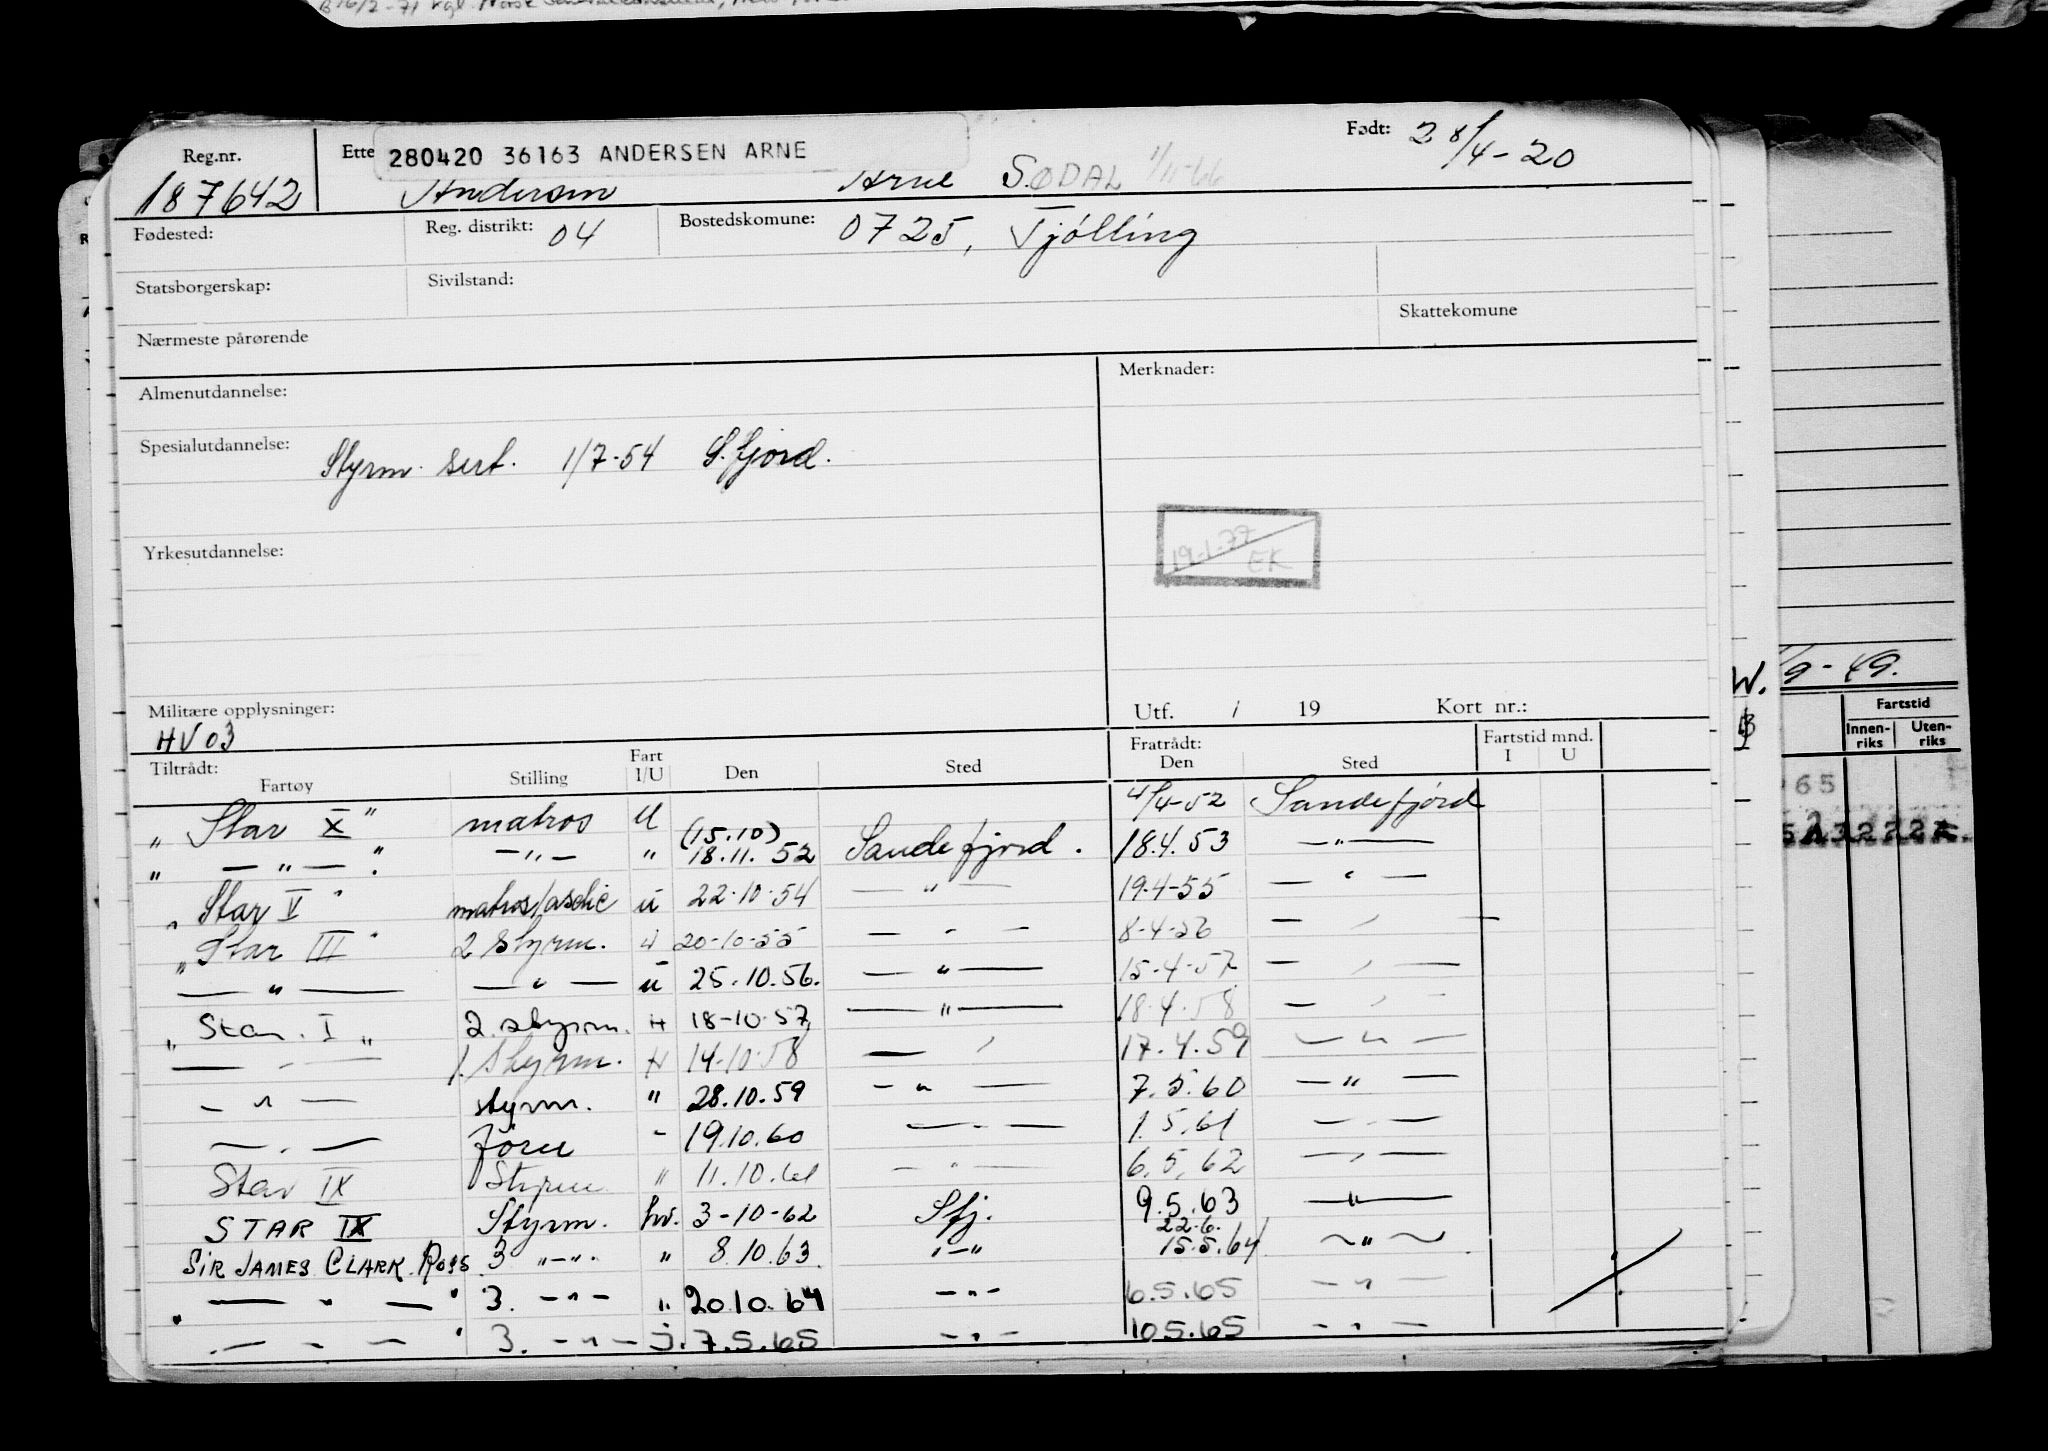 Reg.nr. Ette 280420 36163 ANDERSEN ARNE Født: 28/4-20
187642 Andersen Arne SØDAL 1/11-66
Fødested: Reg. distrikt: 04 Bostedskomune: 0725, Tjølling
Statsborgerskap: Sivilstand:
Nærmeste pårørende Skattekomune
Almenutdannelse: Merknader:
Spesialutdannelse: Styrm. sert. 1/7-54 S.fjord.
19-1-77 EK
Yrkesutdannelse:
Militære opplysninger: Utf. / 19 Kort nr.:
HV03
Tiltrådt: Fratrådt: Fartstid mnd.
Fartøy Stilling Fart I/U Den Sted Den Sted I U
" Star X " matros U 4/4-52 Sandefjord
" — " — " — " — " (15.10) 18.11.52 Sandefjord. 18.4.53 — " —
" Star V " matros/asdic u 22-10-54 — " — 19-4-55 — " —
" Star III " 2 styrm. u 20-10-55 — " — 8-4-56 — " —
— " — — " — u 25.10.56. — " — 15-4-57 — " —
" Star. I " 2. styrm. H 18-10-57 — " — 18.4.58 — " —
— " — 1. Styrm. H 14-10-58 — " — 17.4.59 — " —
— " — styrm. " 28.10.59 — " — 7.5.60 — " —
— " — " 19.10.60 — " — 1.5.61 — " —
Star IX Styrm " 11.10.61 — " — 6.5.62 — " —
STAR IX Styrm. hv. 3-10-62 Sfj. 9.5.63 — " —
22.6.
SIR JAMES CLARK ROSS 3 " — " " 8.10.63. " — " 15.5.64 — " —
" — " — " 3. — " — " 20.10.64 — " — 6.5.65 — " —
— " — " 3. — " — J. 7.5.65 — " — 10.5.65 — " —
9-49.
Fartstid
Innenriks Utenriks
65
W.